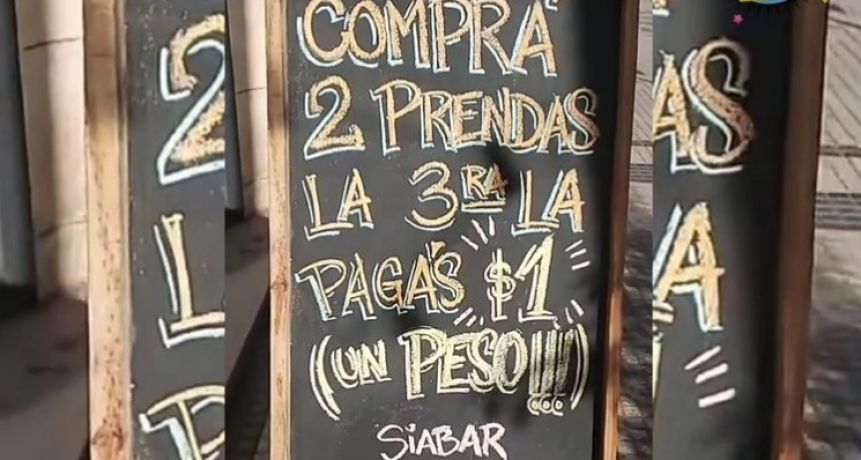 COMPRÁ
2 PRENDAS
LA 3RA LA
PAGÁS $1
(UN PESO!!!)
SIABAR